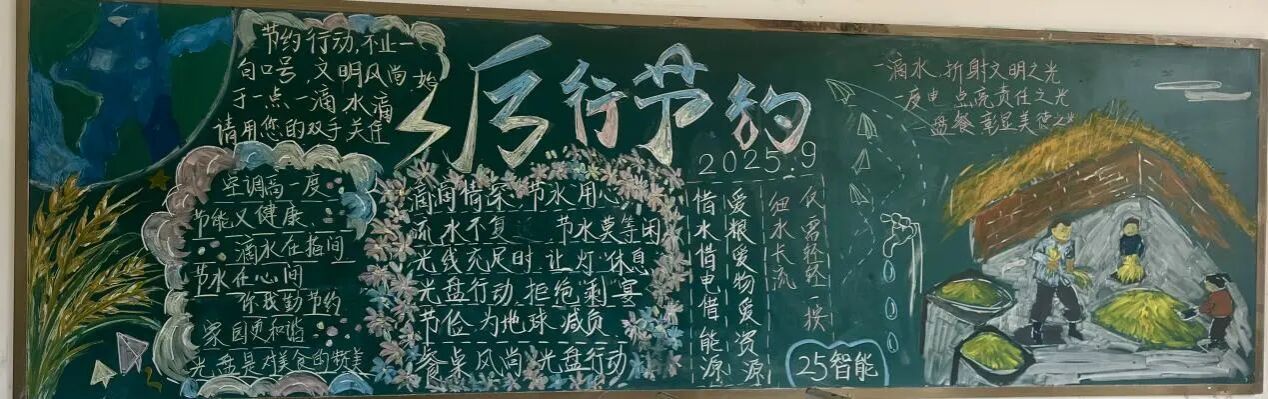 节约行动,不止一
句口号,文明风尚始
于一点一滴水滴
请用您的双手关住
厉行节约
2025.9
一滴水,折射文明之光
一度电 点亮责任之光
一盘餐 彰显美德之光
空调高一度
节能又健康
滴水在指间
节水在心间
你我勤节约
家园更和谐
光盘是对美食的赞美
滴滴情深 节水用心
流水不复 节水莫等闲
光线充足时 让灯休息
光盘行动 拒绝"剩"宴
节俭为地球减负
餐桌风尚 光盘行动
惜水惜电惜能源
爱粮爱物爱资源
细水长流
仅需轻轻一按
25智能